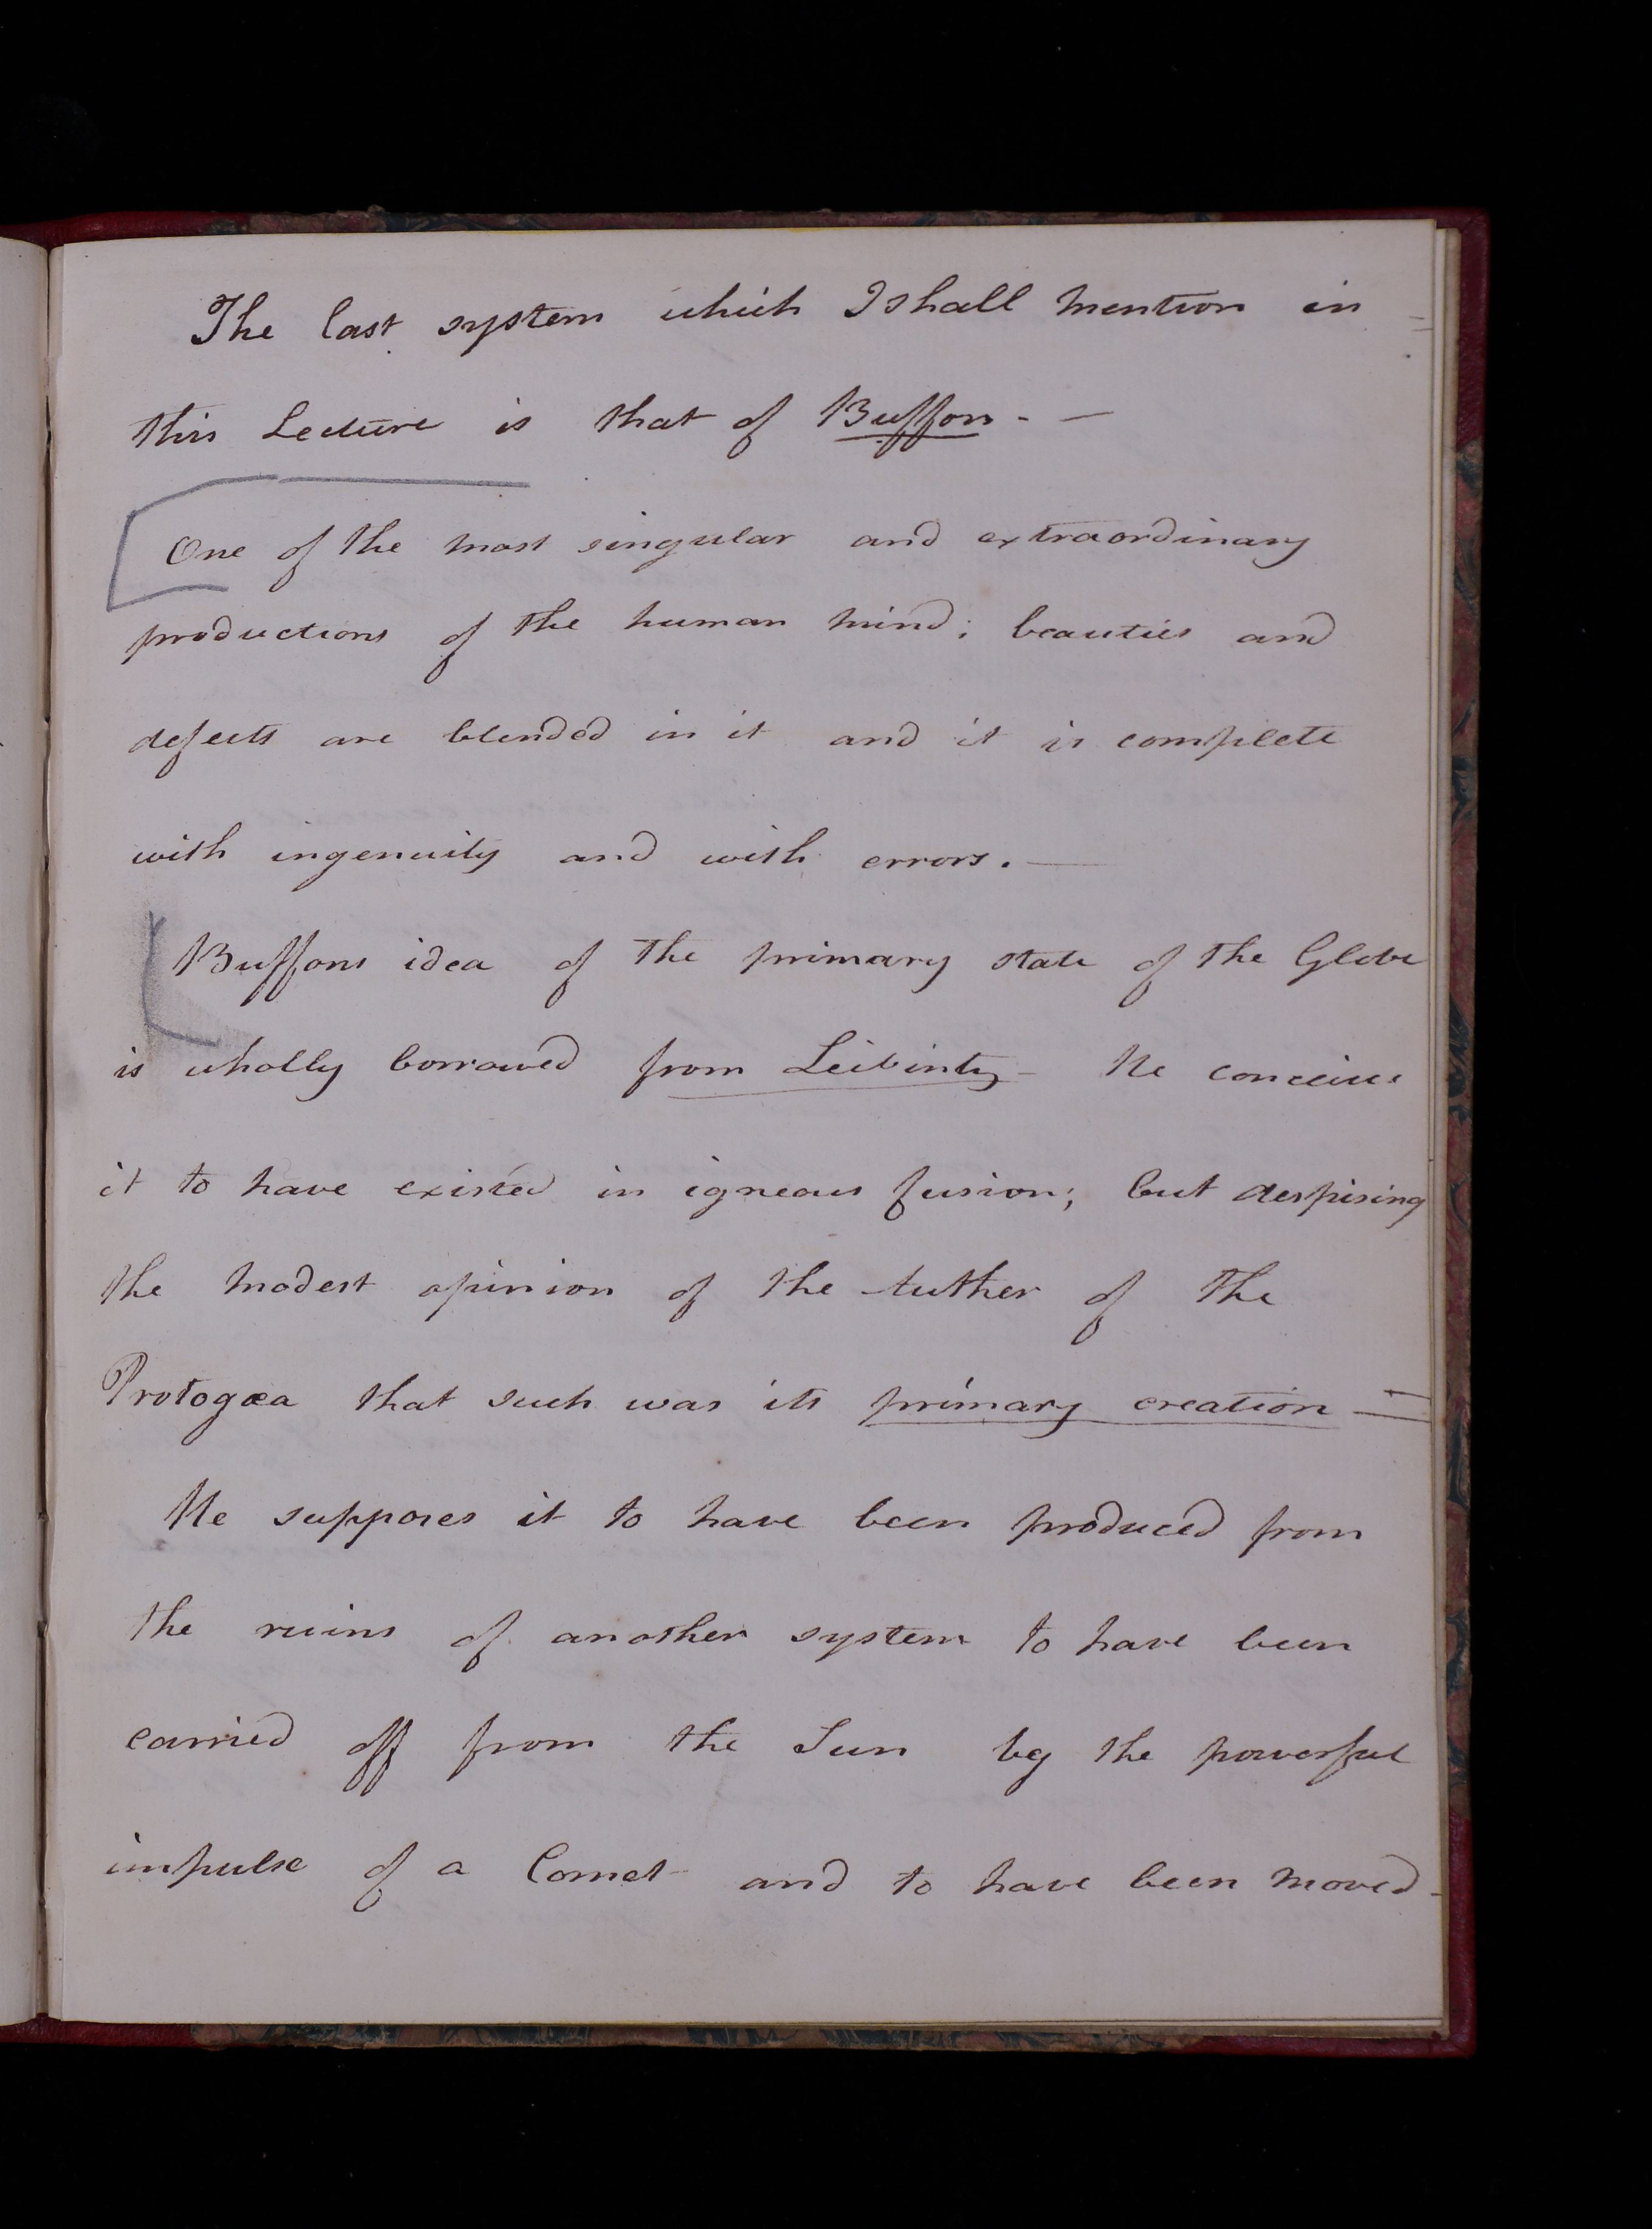 The last system which I shall mention in
this Lecture is that of Buffon - —
One of the most singular and extraordinary
productions of the human mind; beauties and
defects are blended in it and it is complete
with ingenuity and with errors. —
Buffons idea of the primary state of the Globe
is wholly borrowed from Leibintz - He conceives
it to have existed in igneous fusion; but despising
the modest opinion of the Auther of the
Protogæa that such was its primary creation =
He supposes it to have been produced from
the ruins of another system to have been
carried off from the Sun by the powerful
impulse of a Comet and to have been moved -